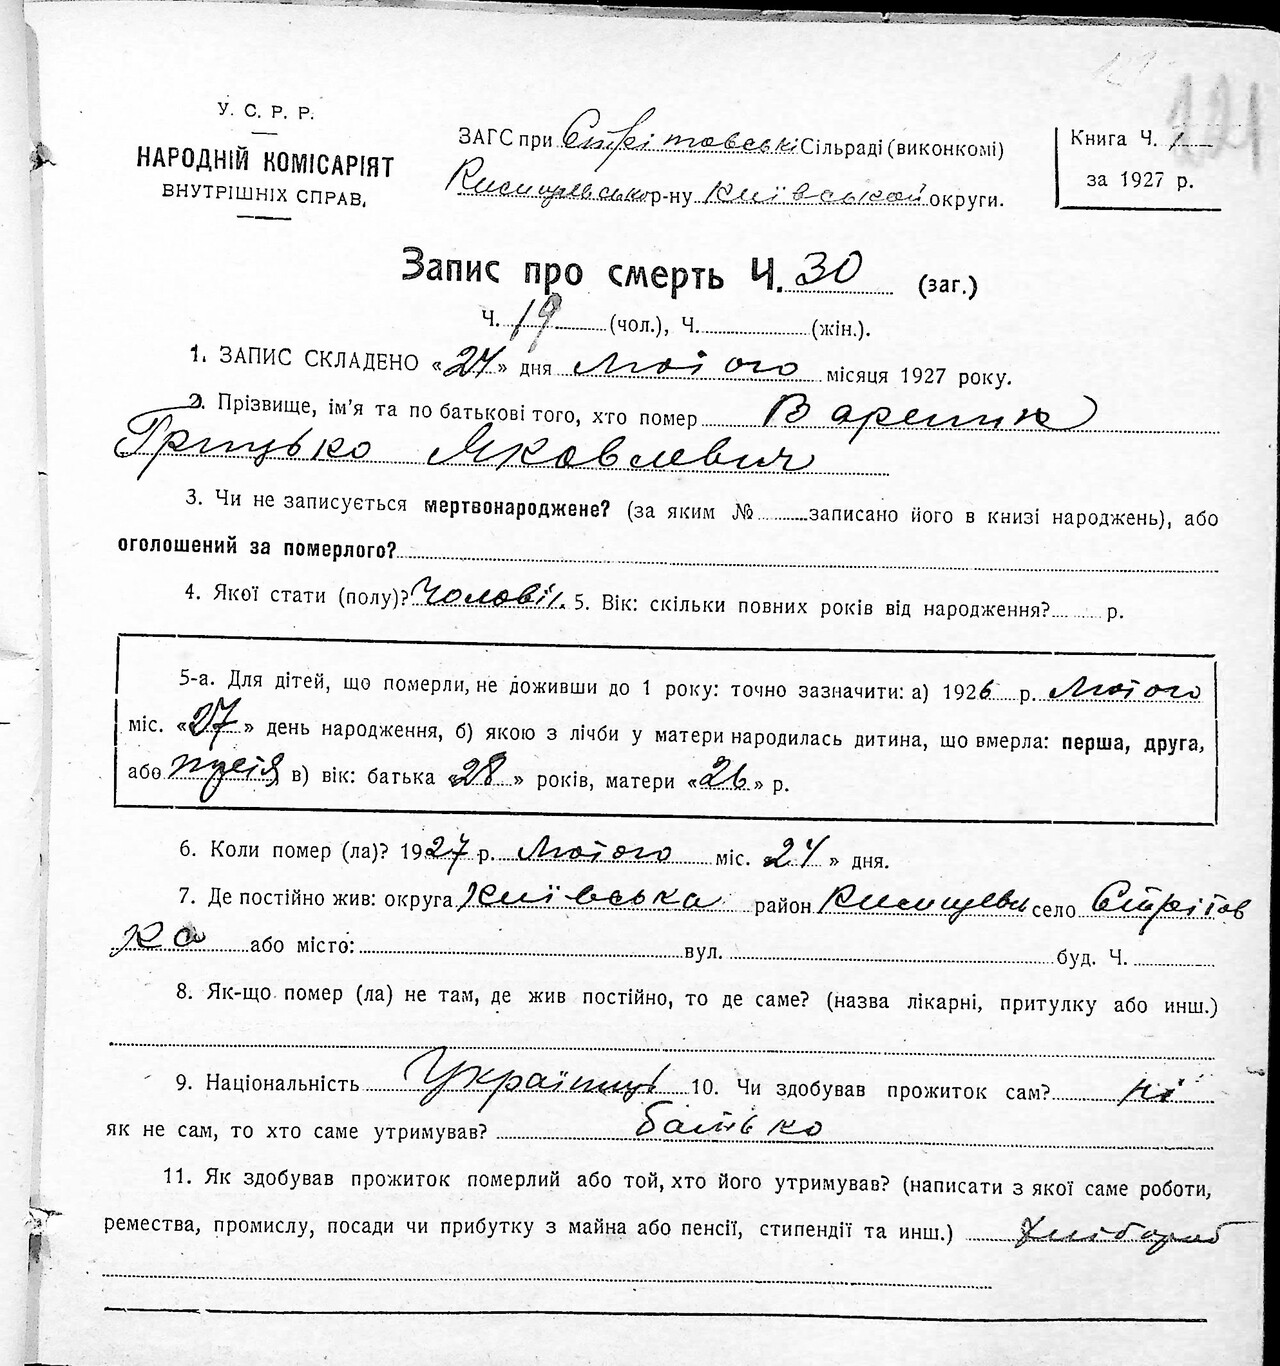 У. С. Р. Р.
НАРОДНІЙ КОМІСАРІЯТ
ВНУТРІШНІХ СПРАВ,
ЗАГС при Стрітовські Сільраді (виконкомі)
р-ну київської округи.
Книга Ч. 1
за 1927 р.
Запис про смерть Ч. 30 (заг.)
Ч. 19 (чол.), Ч. (жін.).
1. ЗАПИС СКЛАДЕНО «24» дня Лютого місяця 1927 року.
2. Прізвище, ім'я та по батькові того, хто помер Вареник
Грицько Яковлевич
3. Чи не записується мертвонароджене? (за яким № записано його в книзі народжень), або
оголошений за померлого?
4. Якої стати (полу)? Чоловіч. 5. Вік: скільки повних років від народження? р.
5-а. Для дітей, що померли, не доживши до 1 року: точно зазначити: а) 1926 р. Лютого
міс. «27» день народження, б) якою з лічби у матери народилась дитина, що вмерла: перша, друга,
або в) вік: батька «28» років, матери «26» р.
6. Коли помер (ла)? 1927 р. Лютого міс. 24 » дня.
7. Де постійно жив: округа Київська район село Стрітов
ка або місто: вул. буд. Ч.
8. Як-що помер (ла) не там, де жив постійно, то де саме? (назва лікарні, притулку або инш.)
9. Національність Українець 10. Чи здобував прожиток сам? ні
як не сам, то хто саме утримував? батько
11. Як здобував прожиток померлий або той, хто його утримував? (написати з якої саме роботи,
ремества, промислу, посади чи прибутку з майна або пенсії, стипендії та инш.) хлібороб